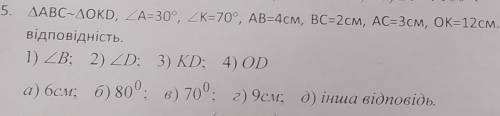 5. ΔABC~ΔOKD, ∠A=30°, ∠K=70°, AB=4см, BC=2см, AC=3см, OK=12см.
відповідність.
1) ∠B; 2) ∠D; 3) KD; 4) OD
а) 6см; б) 80⁰; в) 70⁰; г) 9см; д) інша відповідь.